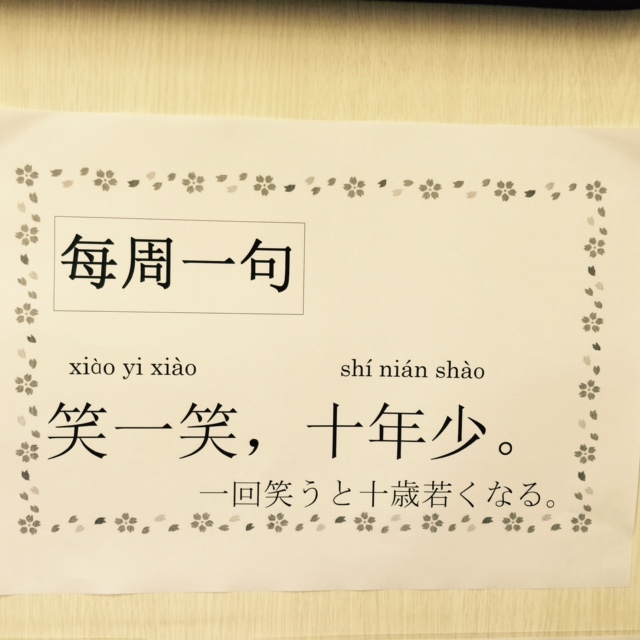 每周一句
xiào yi xiào shí nián shào
笑一笑，十年少。
一回笑うと十歳若くなる。